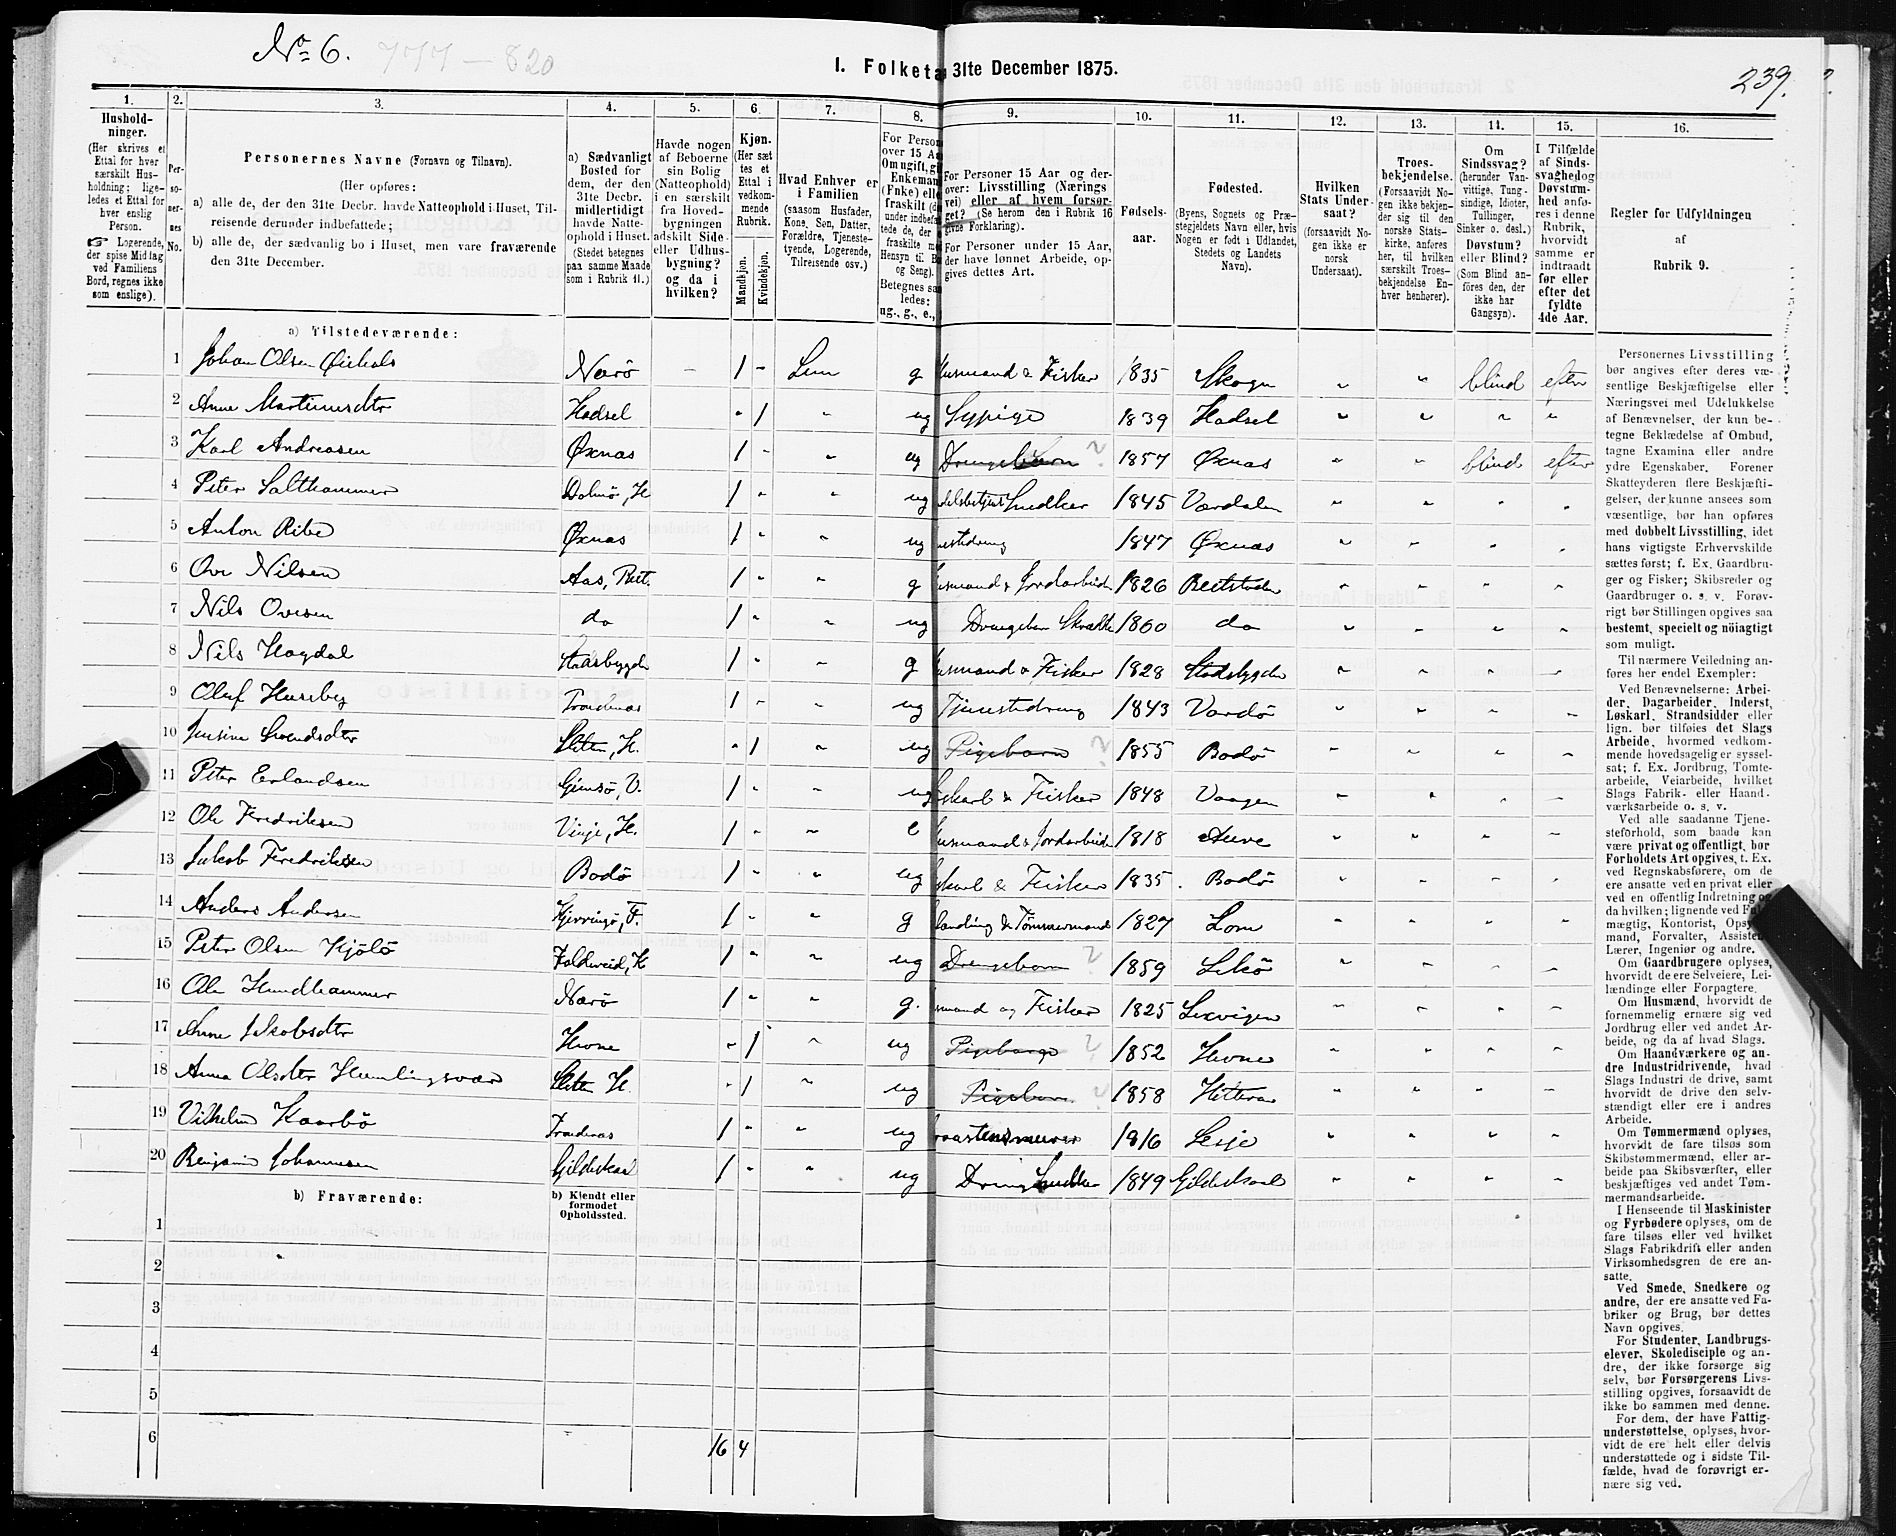 No 6. 777 — 820
1. Folketæ 31te December 1875.
239.
1. 2. 3. 4. 5. 6. 7. 8. 9. 10. 11. 12. 13. 14. 15. 16.
Hushold-
ninger.
(Her skrives et
Ettal for hver
særskilt Hus-
holdning; lige-
ledes et Ettal for
hver enslig
Person.
☞ Logerende,
der spise Middag
ved Familiens
Bord, regnes ikke
som enslige).
Per-
so-
ner-
nes
No.
Personernes Navne (Fornavn og Tilnavn).
(Her opføres:
a) alle de, der den 31te Decbr. havde Natteophold i Huset, Til-
reisende derunder indbefattede;
b) alle de, der sædvanlig bo i Huset, men vare fraværende
den 31te December.
a) Sædvanligt
Bosted for
dem, der den
31te Decbr.
midlertidigt
havde Natte-
ophold i Huset.
(Stedet betegnes
paa samme Maade
som i Rubrik 11.)
Havde nogen
af Beboerne
sin Bolig
(Natteophold)
i en særskilt
fra Hoved-
bygningen
adskilt Side-
eller Udhus-
bygning?
og da i
hvilken?
Kjøn.
(Her sæt
tes et
Ettal i
vedkom-
mende
Rubrik.
Mandkjøn.
Kvindekjøn.
Hvad Enhver er
i Familien
(saasom Husfader,
Kone, Søn, Datter,
Forældre, Tjeneste-
tyende, Logerende,
Tilreisende osv.)
For Person
over 15 Aa
Om ugift, gi
Enkeman
(Enke) elle
fraskilt (d
under indbefa
tede de, der
fraskilte m
Hensyn til B
og Seng).
Betegnes sa
ledes:
ug., g., e.,
For Personer 15 Aar og der-
over: Livsstilling (Nærings
vei) eller af hvem forsør-
get? (Se herom den i Rubrik 16
givne Forklaring).
For Personer under 15 Aar,
der have lønnet Arbeide, op-
gives dettes Art.
Fødsels-
aar.
Fødested.
(Byens, Sognets og Præ-
stegjeldets Navn eller, hvis
Nogen er født i Udlandet,
Stedets og Landets
Navn).
Hvilken
Stats Under-
saat?
(forsaavidt No-
gen ikke er
norsk
Undersaat).
Troes-
bekjendelse.
(Forsaavidt No-
gen ikke bekjen-
der sig til den
norske Stats-
kirke, anføres
her, til hvilken
særskilt Troes-
bekjendelse En-
hver henhører).
Om
Sindssvag?
(herunder Van-
vittige, Tung-
sindige, Idioter,
Tullinger,
Sinker o. desl.)
Døvstum?
eller Blind?
(Som Blind an-
føres den, der
ikke har
Gangsyn).
I Tilfælde
af Sinds-
svaghed og
Døvstum-
hed anfø-
res i denne
Rubrik,
hvorvidt
samme er
indtraadt
før eller
efter det
fyldte
4de Aar.
Regler for Udfyldningen
af
Rubrik 9.
a) Tilstedeværende:
1 Johan Olsen Nærö - 1 - Lem g Husmand & Fisker 1835 Skogn " " blind efter
2 Anne Martinusdtr Hadsel - 1 " ug Sypige 1839 Hadsel " " " "
3 Karl Andreasen Øxnæs 1 - " ug Drengebarn ? 1857 Øxnæs " " blind efter
4 Peter Salthammer 1 " " ug Snedker 1845 Værdalen " " " "
5 Anton Ribe Øxnæs 1 - " ug 1847 Øxnæs " " " "
6 Ove Nilsen Aas, Beit. 1 " " g Husmand & Jordarbeide 1826 Beitstaden " " " "
7 Nils Ovesen do 1 " " ug 1860 do " " " "
8 Nils Hagdal Stadsbygd 1 - " g Husmand & Fisker 1828 Stadsbygden " " " "
9 Oluf Huseby Trondenæs 1 - " ug Tjenestedreng 1843 Vardö " " " "
10 Jensine Svendsdtr Sletten, H. " 1 " ug Pigebarn ? 1855 Bodö " " " "
11 Peter Erlandsen Gimsö, V. 1 - " ug & Fisker 1848 Vaagen " " " "
12 Ole Fredriksen Vinje, H. 1 - " e Husmand & Jordarbeide 1818 Aure " " " "
13 Jakob Fredriksen Bodö 1 " " ug & Fisker 1835 Bodö " " " "
14 Anders Andersen Kjerringö, F. 1 - " g & Tømmermand 1827 Lom " " " "
15 Peter Olsen Kjölö Foldereid, K 1 " " ug Drengebarn ? 1859 Lekö " " " "
16 Ole Hundhammer Nærö 1 " " g. Husmand og Fisker 1825 Lexvigen " " " "
17 Anne Jakobsdtr Hevne " 1 " ug Pigebarn ? 1852 Hevne " " " "
18 Anna Olsdtr Hemlingsvær Sletten H. " 1 " ug Pigebarn ? 1858 Hitteren " " " "
19 Vilhelm Kaarbö Trondenæs 1 " " ug 1816 Lesje " " " "
20 Benjamin Johannesen Gildeskaal 1 - " ug Dreng Snedker 1849 Gildeskaal " " " "
b) Fraværende:
b) Kjendt eller
formodet
Opholdssted.
1
2
3
4
5
6
16 4
Personernes Livsstilling
bør angives efter deres væ-
sentlige Beskjæftigelse eller
Næringsvei med Udelukkelse
af Benævnelser, der kun be-
tegne Beklædelse af Ombud,
tagne Examina eller andre
ydre Egenskaber. Forener
Skatteyderen flere Beskjæfti-
gelser, der kunne ansees som
væsentlige, bør han opføres
med dobbelt Livsstilling, idet
hans vigtigste Erhvervskilde
sættes først; f. Ex. Gaardbru-
ger og Fisker; Skibsreder og
Gaardbruger o. s. v. Forøv-
rigt bør Stillingen opgives saa
bestemt, specielt og nöiagtigt
som muligt.
Til nærmere Veiledning an-
føres her endel Exempler:
Ved Benævnelserne: Arbei-
der, Dagarbeider, Inderst,
Løskarl, Strandsidder eller
lign. bør tilføies det Slags
Arbeide, hvormed vedkom-
mende hovedsagelig er syssel-
sat; f. Ex. Jordbrug, Tomte-
arbeide, Veiarbeide, hvilket
Slags Fabrik- eller Haand-
værksarbeide o. s. v.
Ved alle saadanne Tjene-
steforhold, som baade kan
være privat og offentligt, bør
Forholdets Art opgives, t. Ex.
ved Regnskabsførere, om de
ere ansatte ved en privat eller
ved en offentlig Indretning og
da hvilken; lignende ved Fuld-
mægtig, Kontorist, Opsyns-
mand, Forvalter, Assistent,
Lærer, Ingeniør og andre.
Om Gaardbrugere oplyses,
hvorvidt de ere Selveiere, Lei-
lændinge eller Forpagtere.
Om Husmænd, hvorvidt de
fornemmelig ernære sig ved
Jordbrug eller ved andet Ar-
beide, og da af hvad Slags.
Om Haandværkere og an-
dre Industridrivende, hvad
Slags Industri de drive, samt
hvorvidt de drive den selv-
stændigt eller ere i andres
Arbeide.
Om Tømmermænd oplyses,
hvorvidt de fare tilsøs som
Skibstømmermænd, eller ar-
beide paa Skibsværfter, eller
beskjæftiges ved andet Tøm-
mermandsarbeide.
I Henseende til Maskinister
og Fyrbødere oplyses, om de
fare tilsøs eller ved hvilket
Slags Fabrikdrift eller anden
Virksomhedsgren de ere an-
satte.
Ved Smede, Snedkere og
andre, der ere ansatte ved Fa-
briker og Brug, bør dettes
Navn opgives.
For Studenter, Landbrugs-
elever, Skoledisciple og an-
dre, der ikke forsørge sig
selv, bør Forsørgerens Livs-
stilling opgives, forsaavidt de
ikke bo sammen med denne.
For dem, der have Fattig-
understøttelse, oplyses, hvor-
vidt de ere helt eller delvis
understøttede og i sidste Til-
fælde, hvad de forøvrigt er-
nære sig ved.